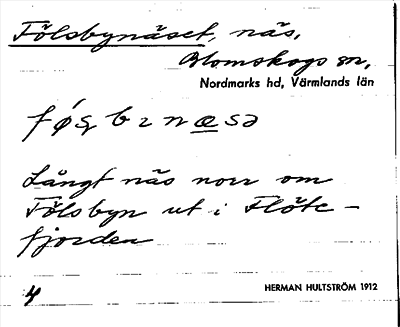 Fölsbynäset, näs,
Blomskogs sn,
Nordmarks hd, Värmlands län
Långt näs norr om
Fölsbyn ut i Flöte-
fjorden
4
HERMAN HULTSTRÖM 1912